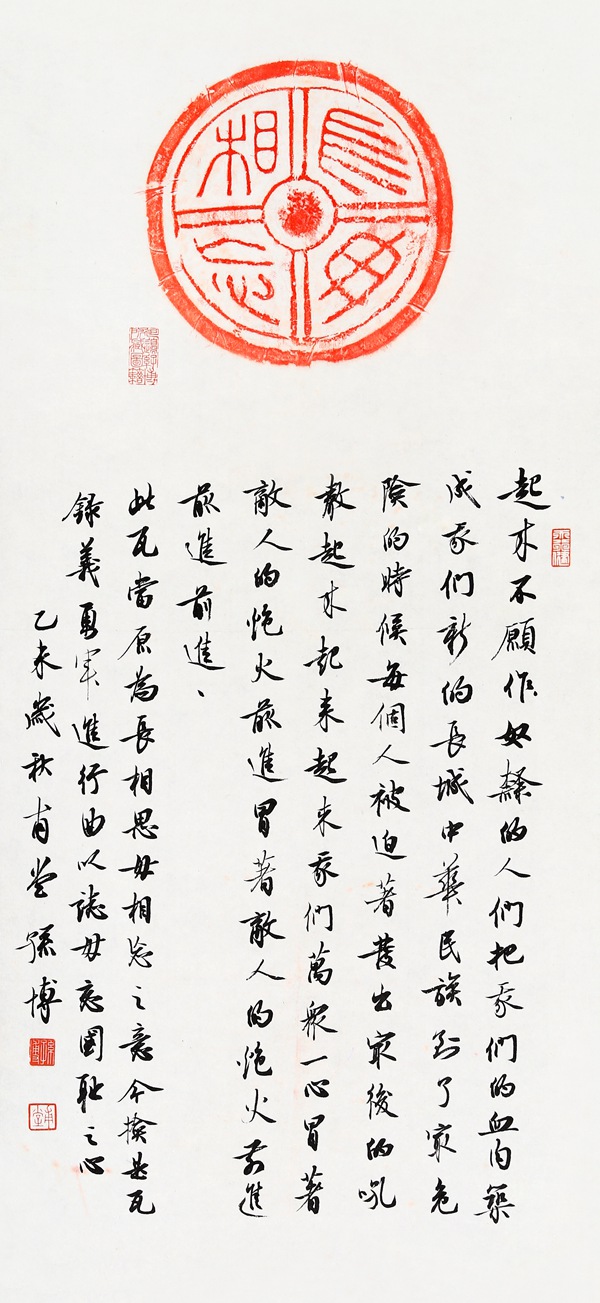 長毋相忘
起来不願作奴隸的人們把我們的血肉築
成我們新的長城中華民族到了最危
險的時候每個人被迫著發出最後的吼
聲起来起来起来我們萬眾一心冒著
敵人的炮火前進冒著敵人的炮火前進
前進前進、
此瓦當原為長相思毋相忘之意今是瓦
錄義勇軍進行曲以誌毋忘國恥之心
乙未歲秋甫堂孫博
孫博
甫堂